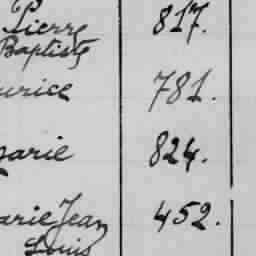 Pierre 817.
Baptiste
urice 781.
arie 824.
arie Jean 452.
Louis